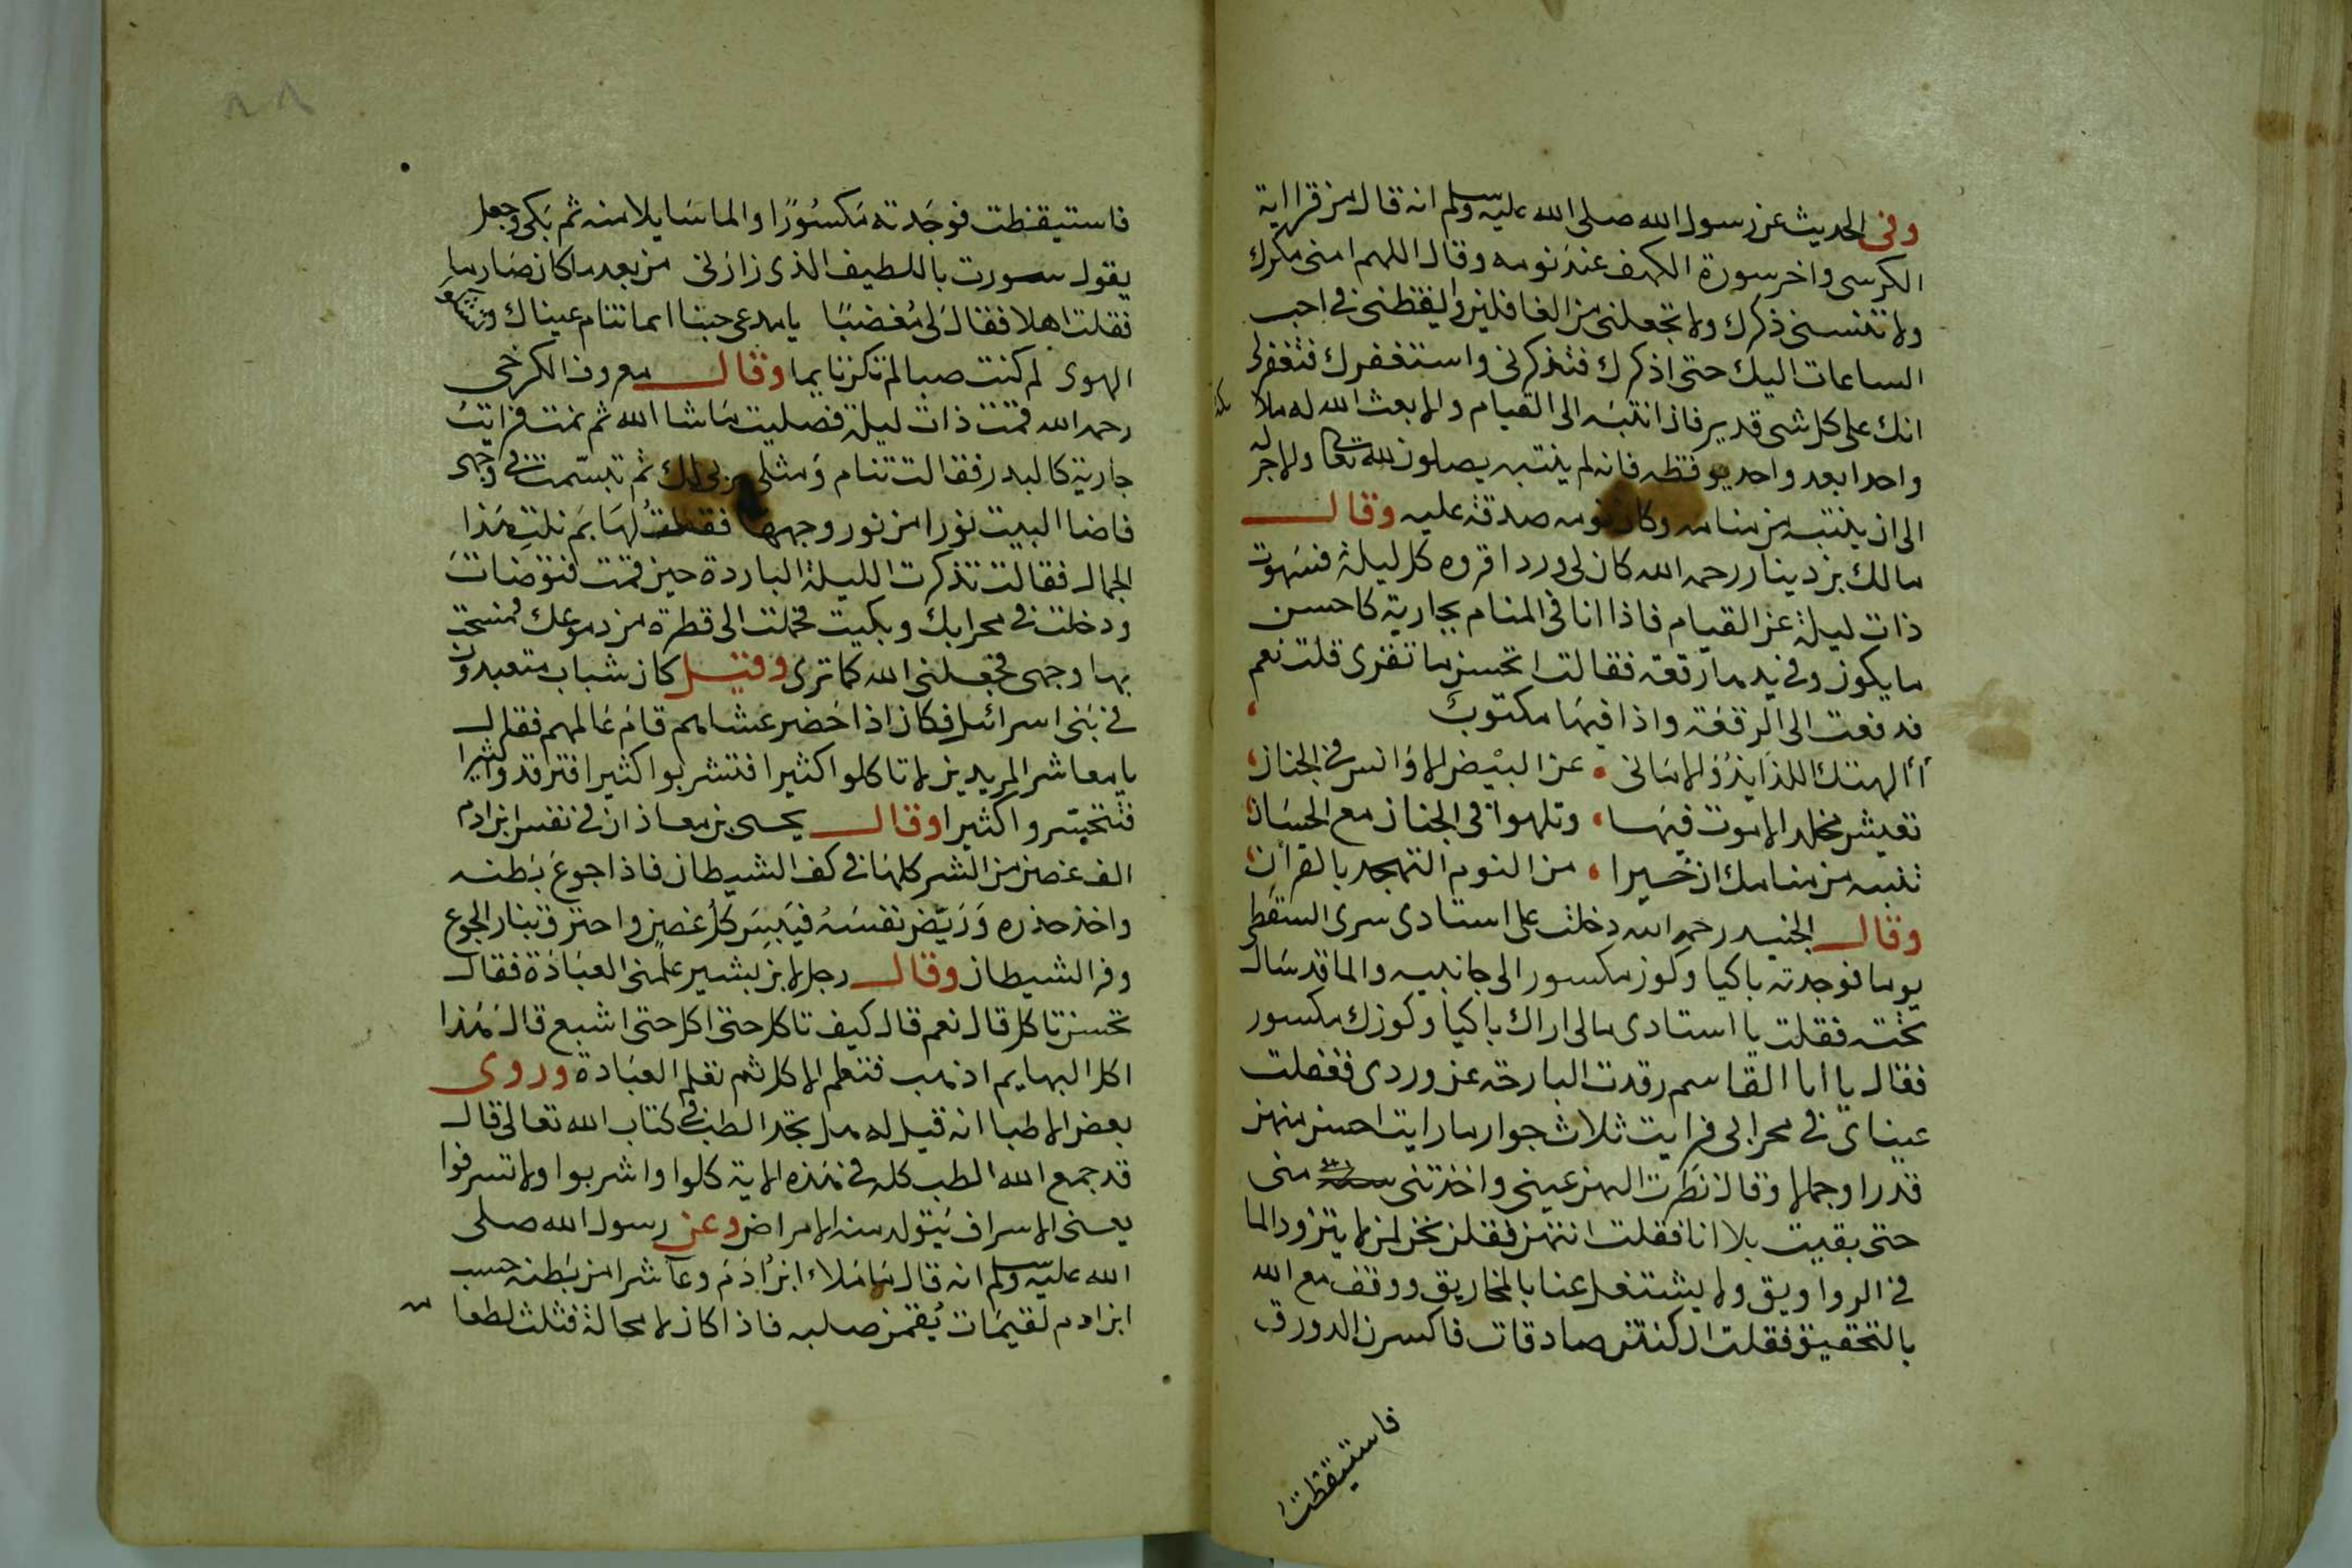 وفى الحديث عن رسول الله صلى الله عليه وسلم انه قال من قرا اية
الكرسى واخر سورة الكهف عند نومه وقال اللهم امنى مكرك
ولا تنسنى ذكرك ولا تجعلنى من الغافلين وايقظنى فى احب
الساعات اليك حتى اذكرك فتذكرنى واستغفرك فتغفر لى
انك على كل شى قدير فاذا انتبه الى القيام والا بعث الله له ملا
واحدا بعد واحد يوقظه فانه لم ينتبه يصلون لله تعا والاجر له
الى ان ينتبه من منامه وكان نومه صدقة عليه وقال
مالك بن دينار رحمه الله كان لى ورد اقروه كل ليلة فسهوت
ذات ليلة عن القيام فاذا انا فى المنام بجارية كاحسن
ما يكون وفى يدها رقعة فقالت اتحسن ما تقرى قلت نعم
فدفعت الى الرقعة واذا فيها مكتوب
أألهتك اللذايذ والامانى عن البيض الاوانس فى الجنان
تعيش مخلد الا موت فيها وتلهوا فى الجنان مع الحسان
تنبه من منامك ان خيرا من النوم التهجد بالقرآن
وقال الجنيد رحمه الله دخلت على استادى سرى السقطى
يوما فوجدته باكيا وكوز مكسور الى جانبيه والما قد سال
تحته فقلت يا استادى مالى اراك باكيا وكوزك مكسور
فقال يا ابا القاسم رقدت البارحة عن وردى فغفلت
عيناى فى محرابى فرايت ثلاث جوار ما رايت احسن منهن
قدرا وجمالا وقال نظرت الهن عينى واخذتنى منى
حتى بقيت بلا انا فقلت انتهن فقلن نحن لمن لا يتزود الما
فى الرواويق ولا يشتغل عنا بالمخاريق ووقف مع الله
بالتحقيق فقلت ان كنتن صادقات فاكسرن الدورق
فاستيقظت
فاستيقظت فوجدته مكسورا والما سايلا منه ثم بكى وجعل
يقول سررت باللطيف الذى زارنى من بعد ما كان صار ما
فقلت اهلا فقال لى مغضبا يا مدعى حبنا اما تنام عيناك
الهوى لم كنت صبا لم تكن نايما وقال معروف الكرخى
رحمه الله قمت ذات ليلة فصليت ما شا الله ثم نمت فرايت
جارية كالبدر فقالت تنام ومثلى يربى لك ثم تبسمت فى وجهى
فاضا البيت نورا من نور وجهها فقلت لها بم نلت هذا
الجمال فقالت تذكرت الليلة الباردة حين قمت فتوضات
ودخلت فى محرابك وبكيت فحملت الى قطرة من دموعك فمسحت
بها وجهى فجعلنى الله كما ترى وقيل كان شباب متعبدون
فى بنى اسرائيل فكان اذا حضر عشاهم قام عالمهم فقال
يا معاشر المريدين لا تاكلوا كثيرا فتشربوا كثيرا فترقدوا كثيرا
فتتحسروا كثيرا وقال يحيى بن معاذ ان فى نفس ابن ادم
الف غصن من الشر كلها فى كف الشيطان فاذا جوع بطنه
واخذ حذره وريض نفسه فيبس كل غصن واحترق بنار الجوع
وفر الشيطان وقال رجل لابن بشير علمنى العبادة فقال
تحسن تاكل قال نعم قال كيف تاكل حتى اكل حتى اشبع قال هذا
اكل البهايم اذهب فتعلم الاكل ثم تعلم العبادة وروى
بعض الاطبا انه قيل له هل تجد الطب فى كتاب الله تعالى قال
قد جمع الله الطب كله فى هذه الاية كلوا واشربوا ولا تسرفوا
يعنى الاسراف يتولد منه الامراض وعن رسول الله صلى
الله عليه وسلم انه قال ما ملاء ابن ادم وعا شرا من بطنه حسب
ابن ادم لقيمات يقمن صلبه فاذا كان لا محالة فثلث لطعا